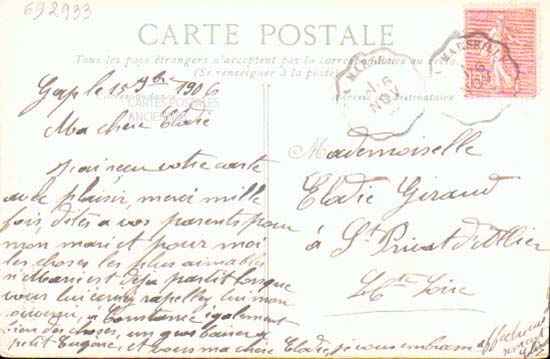 692933
CARTE POSTALE
Tous les pays étrangers n'acceptent pas la correspondance au recto.
(Se renseigner à la poste)
Correspondance
Adresse du destinataire
CARTES POSTALES
ANCIENNES
MARSEILLE
16
NOV
Gap le 15 9bre 1906
Ma chère Elodie
J'ai reçu votre carte
avec plaisir, merci mille
fois, dites a vos parents pour
mon mari et pour moi
les choses les plus aimables
Marie est déja partit lorsque
vous lui rappeler mon
souvenir, a Constance egalement
bien des choses, un gros baiser a
petit Eugène, et vous ma chère Elodie, je vous embrasse
Mademoiselle
Elodie Giraud
à St Privat d'Allier
Hte Loire